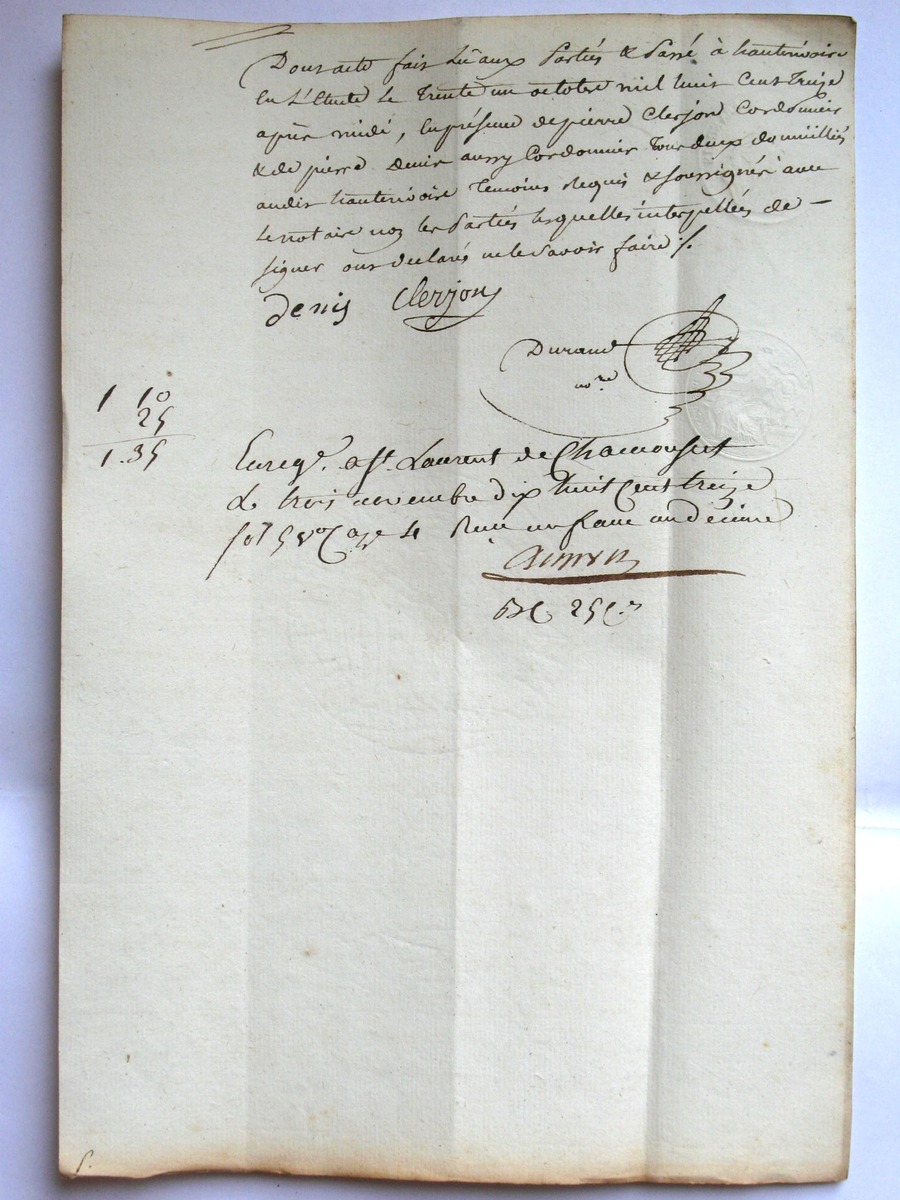 Dont acte fait Lu aux Parties & Passé à hauterivoire
En L'Etude Le Trente un octobre mil huit Cent Treize
après midi, En présence de pierre Clerjon Cordonnier
& de pierre Denis aussy Cordonnier Tous deux domiciliés
audit hauterivoire Temoins Requis & soussignés avec
Le notaire non les Parties lesquelles interpellées de –
signer ont declarés ne le Savoir faire ./.
Denis Clerjon
Durand
no.re
1 10
25
1.35
Enreg.é a St. Laurent de Chamousset
Le trois novembre dix huit Cent treize
fol 5 v.o Case 4 Reçu un franc un décime
25 C.